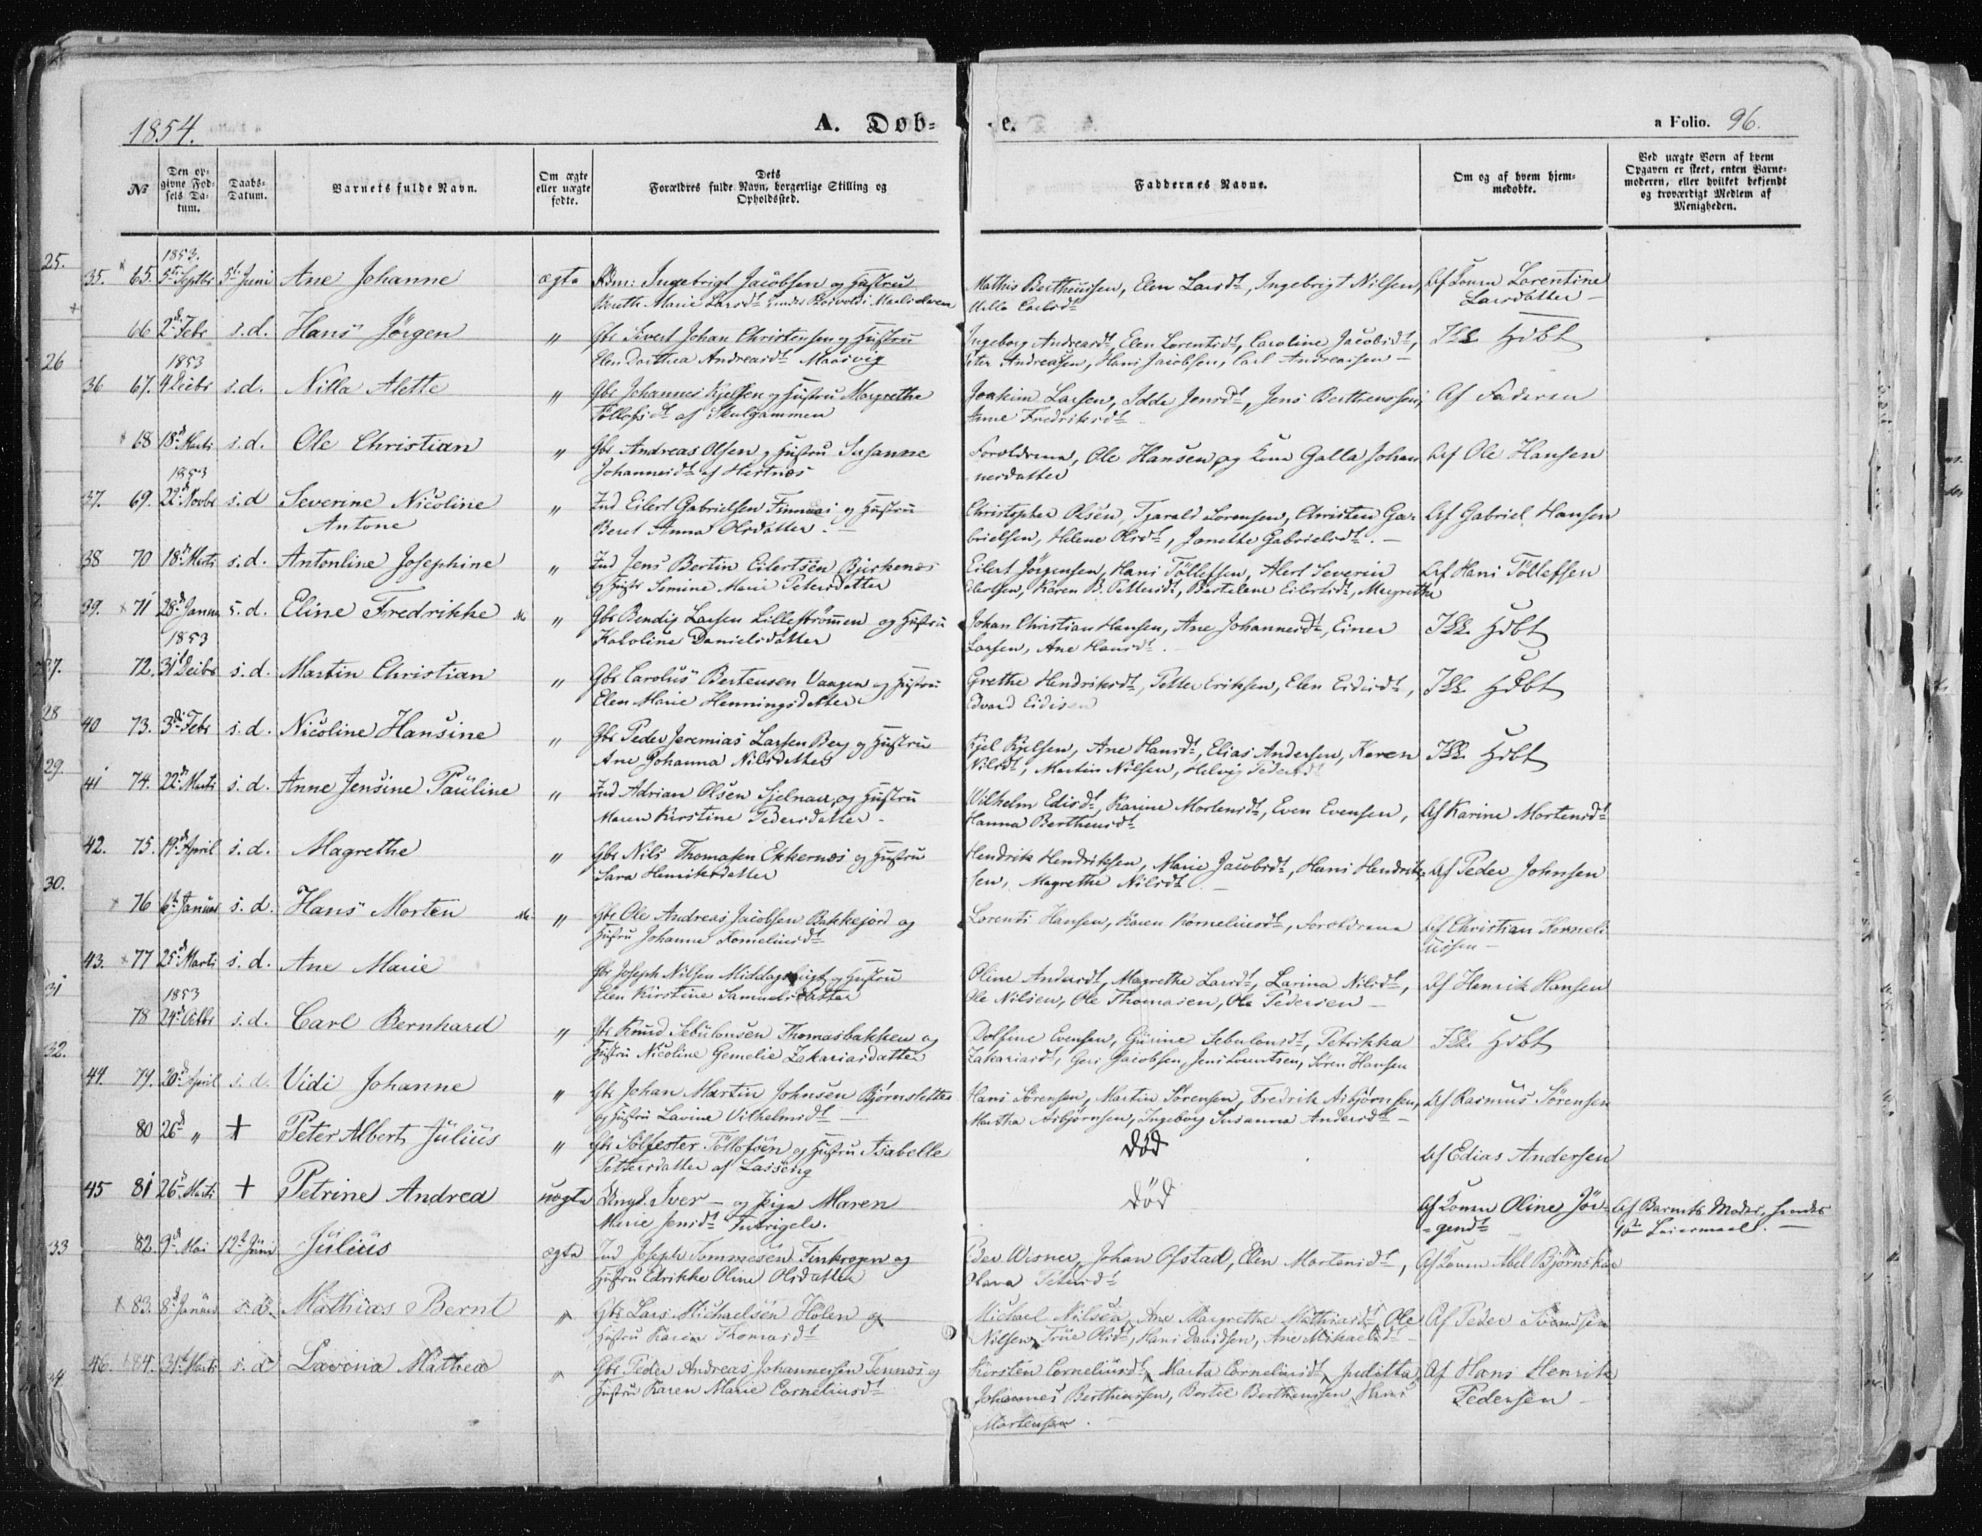 1854.
A. Døb-
e.
a Folio. 96.
No
Den op-
givne Fød-
sels Da-
tum.
Daabs-
Datum.
Barnets fulde Navn.
Om ægte
eller uægte
fødte.
Dets
Forældres fulde Navn, borgerlige Stilling og
Opholdssted.
Faddernes Navne.
Om og af hvem hjem-
medøbte.
Ved uægte Børn af hvem
Opgaven er skeet, enten Barne-
moderen, eller hvilket bekjendt
og troværdigt Medlem af
Menigheden.
25.
1853.
35. 65. 5t Septbr 5t Juni Ane Johanne ægte Ingebrigt Jacobsen og Hustru
Marie Larsdt
Mathis Bertheussen, Elen Larsdt, Ingebrigt Nilsen,
Nilla Carlsdt
Af Konen Lorentine
Larsdatter
66 2d Febr s.d. Hans Jörgen " Gbr Sivert Johan Christensen og Hustru
Elen Dorthea Andreasdt Maasvig
Ingeborg Andreasdt, Elen Lorentsdt, Caroline Jacobsdt,
Peter Andreassen, Hans Jacobsen, Carl Andreassen
Ikke Hdbt
26
1853
36 67. 9 Decbr s.d. Nilla Alette " Gbr Johannes Kjelsen og Hustru Margrethe
Töllefsdt af Skulgammen
Joakim Larsen, Idde Jensdt, Jens Berthenssen,
Anne Fredriksdt
Af Faderen
68 18d Marts s.d. Ole Christian " Gbr Andreas Olsen og Hustru Susanne
Johannesdt af Hertnæs
Forældrene, Ole Hansen og Kone Galla Johan-
nesdatter
Af Ole Hansen
1853
37. 69. 22d Novbr s.d Severine Nicoline
Antone
" Ind Eilert Gabrielsen Finnæs og Hustru
Beret Anna Olsdatter.
Christopher Olsen, Tharald Sörensen, Christen Ga-
brielsen, Helene Olsdt, Janethe Gabrielsdt.
Af Gabriel Hansen
38 70 18d Marts s.d. Antonline Josephine " Ind Jens Bertin Eilertsen Bjerkenes
og Hustr Simine Marie Petersdatter
Eilert Jörgensen, Hans Töllefsen, Alert Severin
Eilertsen, Karen B. Pettersdt, Bertelene Eilertsdt, Margrethe
Af Hans Töllefsen
39. 71 28d Januar s.d. Eline Fredrikke " Gbr Bendig Larsen Lillestrømmen og Hustru
Karoline Danielsdatter
Johan Christian Hansen, Ane Johannesdt, Einer
Larsen, Ane Hansdt.
Ikke Hdbt
27.
1853
72. 31t Decbr s.d. Martin Christian " Gbr Carolus Berteusen Vaagen og Hustru
Elen Marie Henningsdatter
Grethe Hendriksdt, Petter Eriksen, Elen Eidisdt,
Edvard Eidisen
Ikke Hdbt
28
40 73. 3die Febr s.d. Nicoline Hansine " Gbr Peder Jeremias Larsen Berg og Hustru
Ane Johanna Nilsdatter
Kjel Kjelsen, Ane Hansdt, Elias Andersen, Karen
Nilsdt, Martin Nilsen, Helvig Pedersdt
Ikke Hdbt
29.
41 74. 22d Marts s.d. Anne Jensine Pauline " Ind Adrian Olsen Sjelnan og Hustru
Maren Kirstine Pedersdatter
Wilhelm Edisdt, Karine Mortensdt, Even Evensen,
Hanna Berthensdt
Af Karine Mortensdt
42. 75. 19d April s.d. Magrethe " Gbr Nils Thomasen Ekkernæs og Hustru
Sara Henriksdatter
Hendrik Hendriksen, Marie Jacobsdt, Hans Hendrik-
sen, Magrethe Nilsdt
Af Peder Johnsen
30.
76 6t Januar s.d. Hans Morten " Gbr Ole Andreas Jacobsen Bakkejord og
Hustru Johanne Korneliusdt
Lorents Hansen, Karen Korneliusdt, Forældrene
Af Christian Korneli-
ussen
43. 77 25d Marts s.d. Ane Marie Gbr Joseph Nilsen Middagsbugt og Hustru
Elen Kirstine Samuelsdatter
Oline Andersdt, Magrethe Larsdt, Larina Nilsdt,
Ole Nilsen, Ole Thomasen, Ole Pedersen
Af Henrik Hansen
31
1853
78 24d Octbr s.d. Carl Bernhard " Gbr Knud Sebulonsen Thomasbakken og
Hustru Nicoline Gemelie Zakariasdatter
Dolfine Evensen, Gurine Sebulonsdt, Petrikka
Zakariasdt, Geri Jacobsen, Jens Lorentsen, Sören Hansen
Ikke Hdbt
32.
44. 79. 20d April s.d. Vidi Johanne " Gbr Johan Martin Johnsen Bjørnslette
og Hustru Lavine Vilhelmsdt
Hans Sörensen, Martin Sörensen, Fredrik Asbjørnsen,
Martha Asbjørnsen, Ingeborg Susanna Andersdt
Af Rasmus Sörensen
80 26d " + Peter Albert Julius " Gbr Sölfester Töllofsen og Hustru Isabelle
Pettersdatter af Lasseng
død
Af Edias Andersen
45 81 26d Marts + Petrine Andrea uægte Ungk. Iver — og Pige Maren
Marie Jensdt
død
Af Konen Oline Jör-
gensdt
Af Barnets Moder, hendes
1ste Leiermaal.
33
82. 9d Mai 12t Juni Julius ægte Ind Joseph Tommesen Finkroken og
Hustru Edrikke Oline Olsdatter
Peder Wisner, Johan Ofstad, Elen Mortensdt,
Olava Petersdt
Af Konen Abel Bjørnskar
83. 8d Januar s.d. Mathias Bernt " Gbr Lars Michaelsen Holen og
Hustru Karen Thomasdt
Michael Nilsen, Ane Margrethe Mathiasdt, Ole
Nilsen, True Olsdt, Hans Davidsen, Ane Mikaelsdt
Af Peder Svendsen
34
46. 84. 31t Marts s.d. Lovina Mathea " Gbr Peder Andreas Johannesen Tennæs og
Hustru Karen Marie Corneliusdt
Kirsten Corneliusdt, Marta Corneliusdt, Juditta
Johannes Bertheussen, Bertel Bertheussen, Hans
Mortensen.
Af Hans Henrik
Pedersen